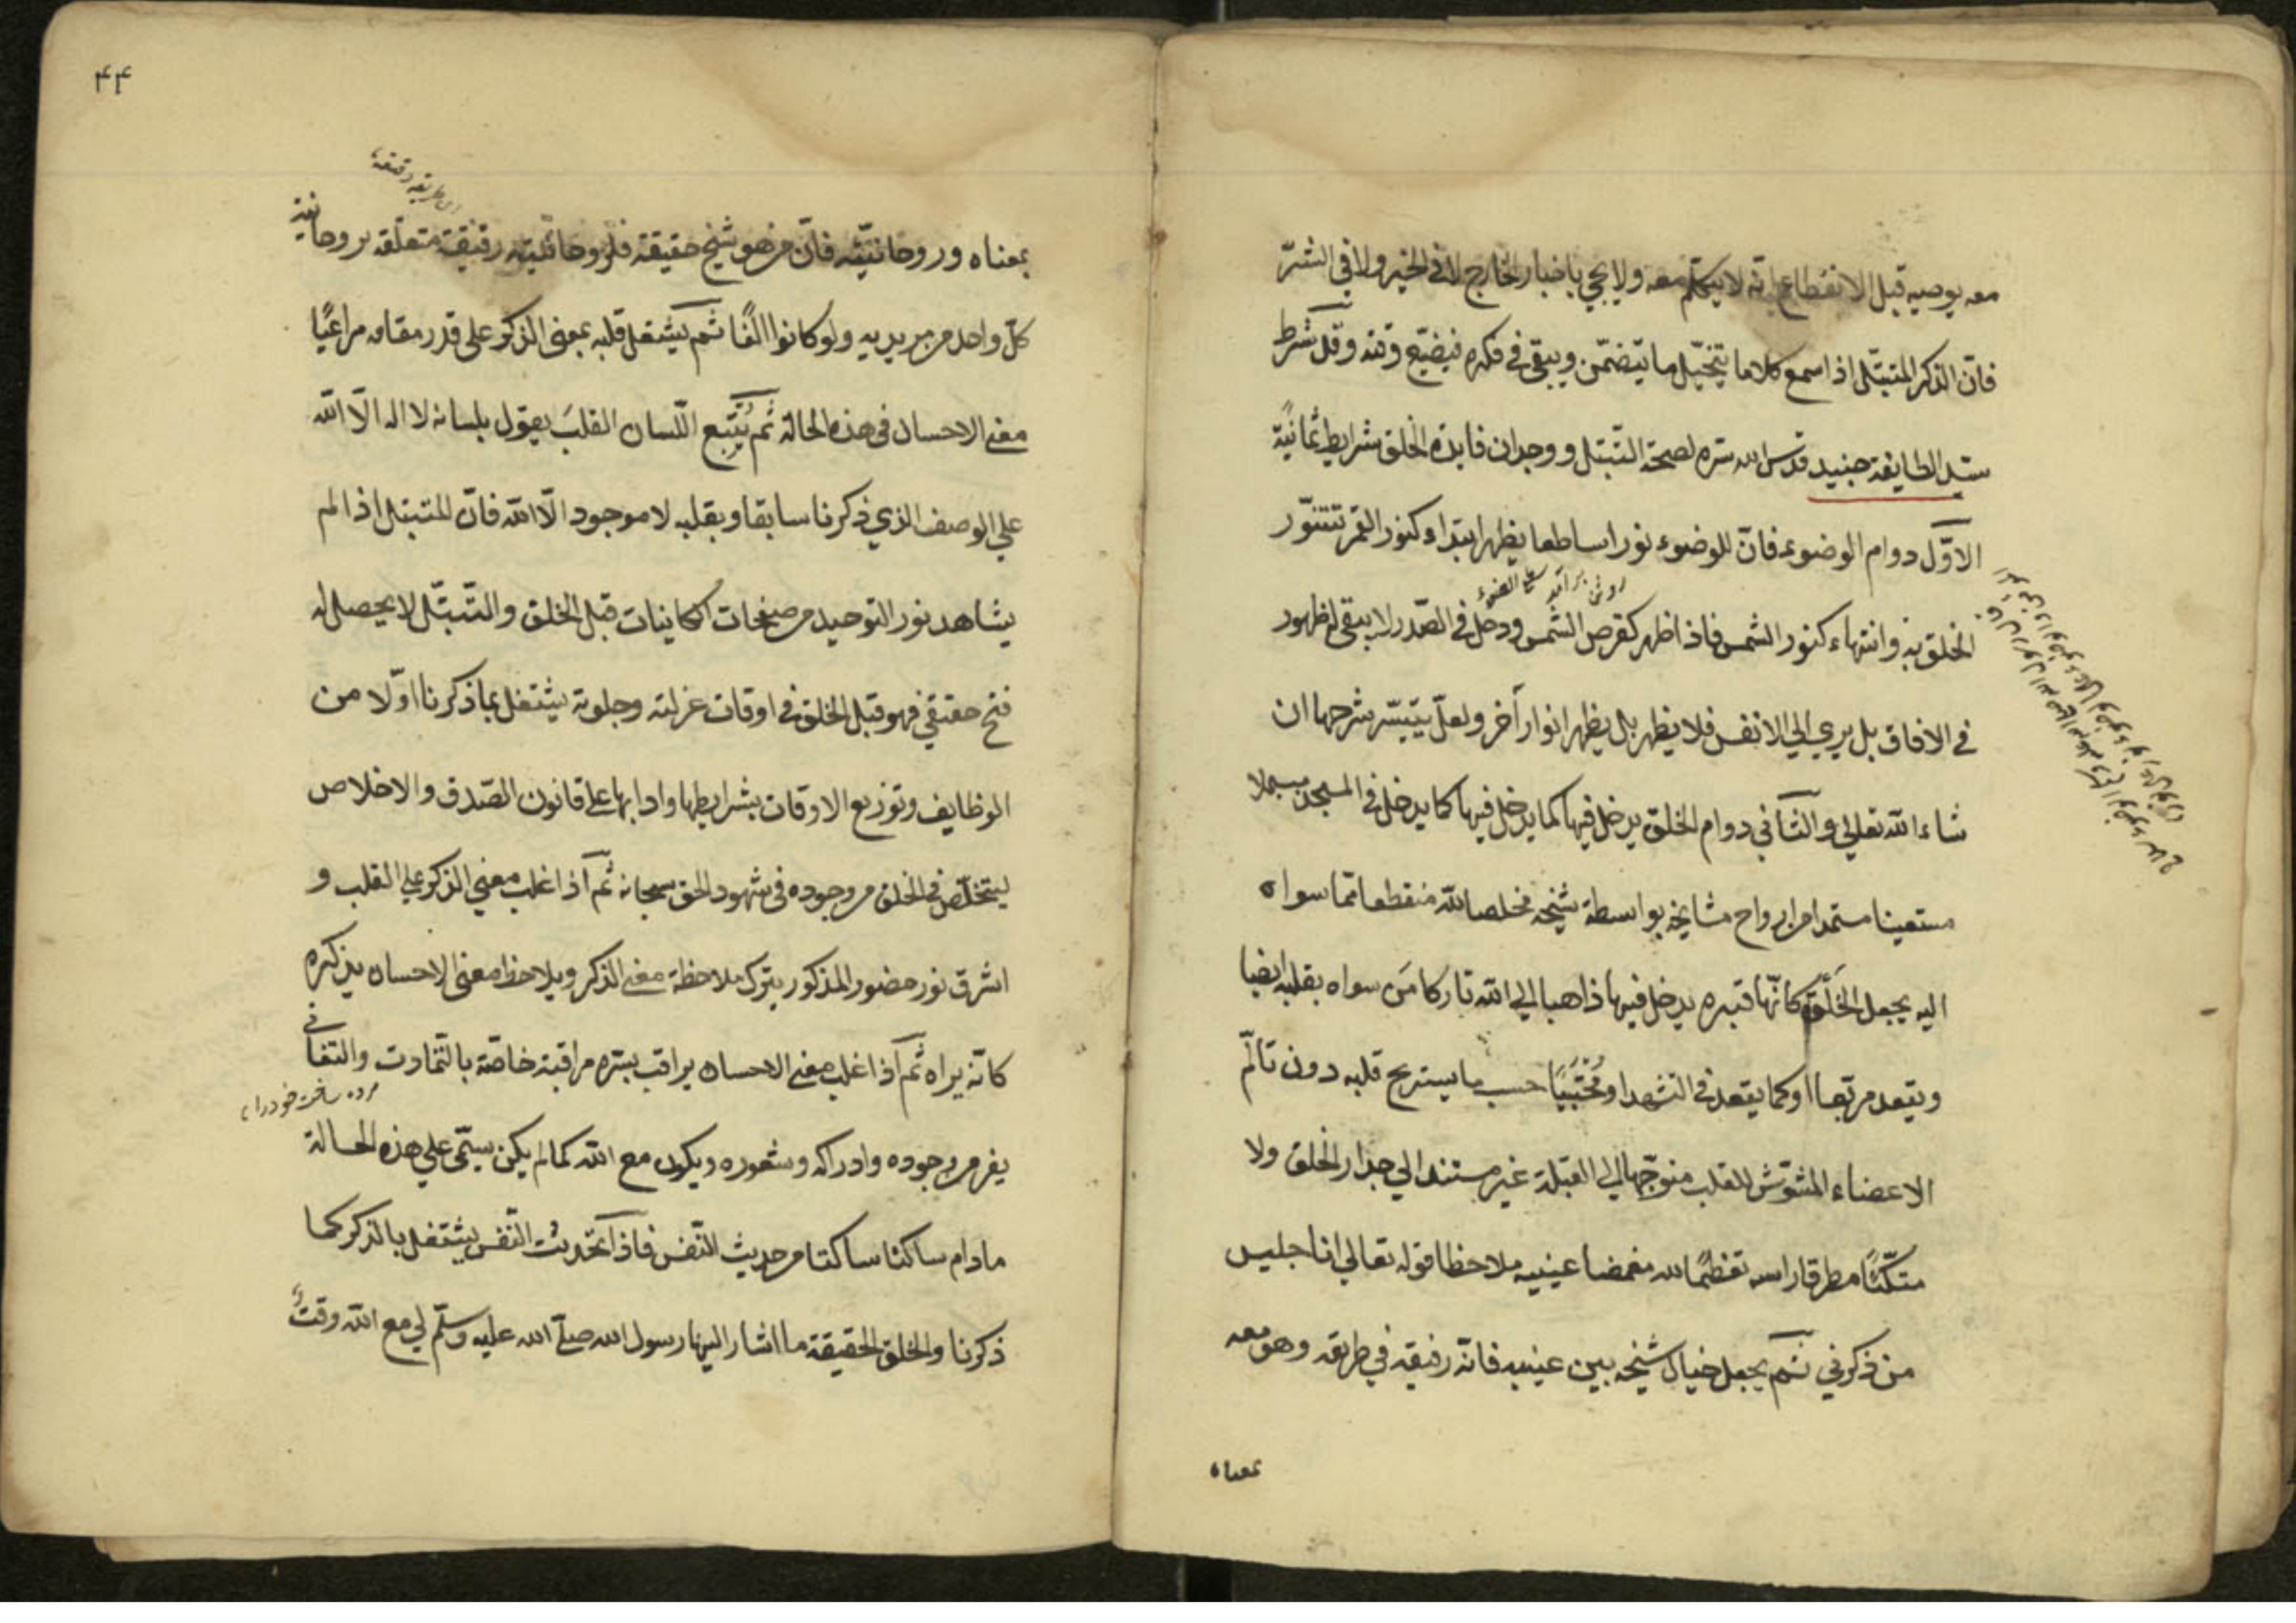 معه يوصيه قبل الانقطاع بانه لا يتكلّم معه ولا يجي باخبار الخارج لا في الخير ولا في الشرّ
فانّ الذاكر المتبتّل اذا سمع كلاما يتخيّل ما يتضمّن ويبقى في فكره فيضيّع وقته وقد شرط
سيّد الطايفة جنيد قدّس الله سرّه لصحة التّبتّل ووجدان فايدة الخلوة شرايط ثمانية
الاوّل دوام الوضوء فانّ للوضوء نورا ساطعا يظهر ابتداء كنور القمر تتنوّر
الخلوة به وانتهاء كنور الشمس فاذا ظهر كقرص الشمس ودخل في الصّدر لا يبقى له ظهور
في الافاق بل يري الي الانفس فلا يظهر بل يظهر انوار أخر ولعلّ يتيسّر شرحها ان
شاء الله تعالي والثّاني دوام الخلوة يدخل فيها كما يدخل فيها كما يدخل في المسجد مبسملا
مستعينا مستمدا من ارواح مشايخه بواسطة شيخه مخلصا لله منقطعا عمّا سواه
اليه يجعل الخلوة كانّها قبره يدخل فيها ذاهبا الي الله تاركا من سواه بقلبه ايضا
ويقعد مربّعا او كما يقعد في التشهد او مُحْتَبِيًا حسب ما يستريح قلبه دون تألّم
الاعضاء المشوّش للقلب متوجّها الي القبلة غير مستند الي جدار الخلوة ولا
متكّئًا مطرقا راسه تعظيمًا لله مغمضا عينيه ملاحظا قوله تعالي انا جليس
من ذكرني ثم يجعل خيال شيخه بين عينيه فانّه رفيقه في طريقه وهو معه
بمعناه
۴۴
بمعناه وروحانيّته فانّ من هو شيخ حقيقة فلروحانيّته رقيقة متعلّقة بروحانية
كلّ واحد من مريديه ولو كانوا الفًا ثم يشتغل قلبه بمعنى الذكر على قدر مقامه مراعيًا
معنى الاحسان في هذه الحالة ثم يُتبع اللّسان القلبَ يقول بلسانه لا اله الّا الله
علي الوصف الذي ذكرنا سابقا وبقلبه لا موجود الّا الله فانّ المتبتل اذا لم
يشاهد نور التوحيد من صفحات الكاينات قبل الخلوة والتّبتّل لا يحصل له
فتح حقيقي فهو قبل الخلوة في اوقات عزلته وجلوته يشتغل بما ذكرنا اوّلا من
الوظايف وتوزيع الاوقات بشرايطها وادابها على قانون الصّدق والاخلاص
ليتخلّص في الخلوة من وجوده في شهود الحق سبحانه ثم اذا غلب معني الذكر علي القلب و
اشرق نور حضور المذكور يترك ملاحظة معنى الذكر ويلاحظ معنى الاحسان يذكره
كانّه يراه ثم اذا غلب معنى الاحسان يراقب بسّره مراقبة خاصّة بالتّماوت والتفانى
مرده ساختن خود را
يفر من وجوده وادراكه وشعوره ويكون مع الله كما لم يكن يبقى علي هذه الحالة
مادام ساكنا ساكتا من حديث النّفس فاذا تحدّثت النّفس يشتغل بالذكر كما
ذكرنا والخلوة الحقيقة ما اشار اليها رسول الله صلّى الله عليه وسلّم لي مع الله وقتٌ